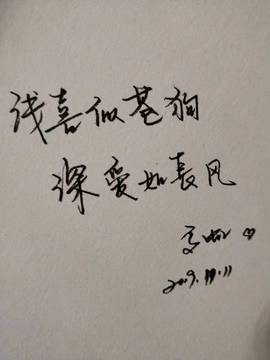 浅喜似蒼狗
深愛如長风
2019.11.11